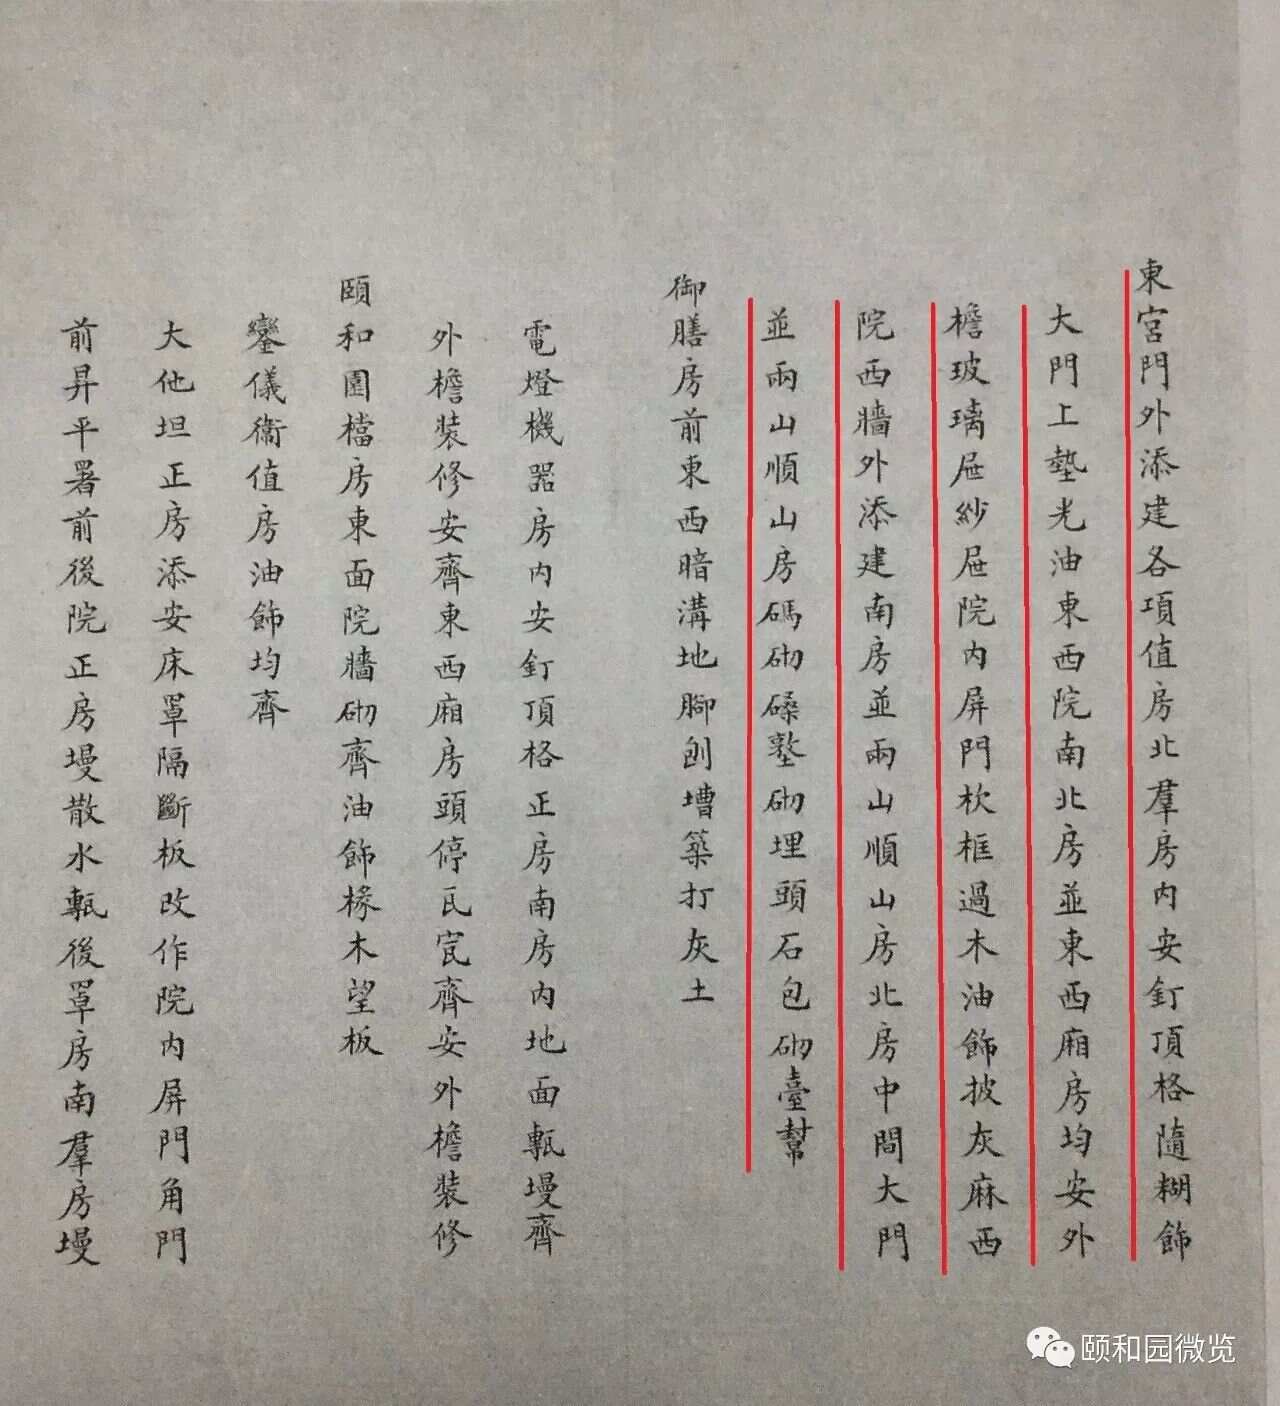 東宮門外添建各項值房北羣房内安釘頂格隨糊飾
大門上墊光油東西院南北房並東西廂房均安外
檐玻璃屉紗屉院内屏門杴框過木油飾披灰麻西
院西牆外添建南房並兩山順山房北房中間大門
並兩山順山房碼砌磉墪砌埋頭石包砌臺幫
御膳房前東西暗溝地腳刨墰築打灰土
電燈機器房内安釘頂格正房南房内地面甎墁齊
外檐裝修安齊東西廂房頭停瓦宽齊安外檐裝修
頤和園檔房東面院牆砌齊油飾椽木望板
鑾儀衞值房油飾均齊
大他坦正房添安床罩隔斷板改作院内屏門角門
前昇平署前後院正房墁散水甎後罩房南羣房墁
颐和园微览